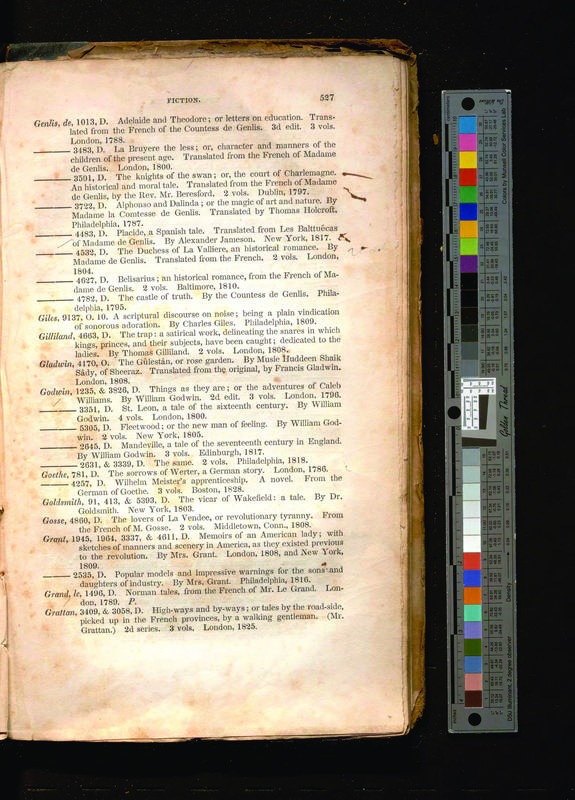 FICTION. 527
Genlis, de, 1013, D. Adelaide and Theodore; or letters on education. Trans-
lated from the French of the Countess de Genlis. 3d edit. 3 vols.
London, 1788.
——— 3483, D. La Bruyere the less; or, character and manners of the
children of the present age. Translated from the French of Madame
de Genlis. London, 1800.
——— 3591, D. The knights of the swan; or, the court of Charlemagne.
An historical and moral tale. Translated from the French of Madame
de Genlis, by the Rev. Mr. Beresford. 2 vols. Dublin, 1797.
——— 3722, D. Alphonso and Dalinda; or the magic of art and nature. By
Madame la Comtesse de Genlis. Translated by Thomas Holcroft.
Philadelphia, 1787.
——— 4483, D. Placide, a Spanish tale. Translated from Les Battuécas
of Madame de Genlis. By Alexander Jameson. New York, 1817.
——— 4532, D. The Duchess of La Valliere, an historical romance. By
Madame de Genlis. Translated from the French. 2 vols. London,
1804.
——— 4627, D. Belisarius; an historical romance, from the French of Ma-
dame de Genlis. 2 vols. Baltimore, 1810.
——— 4782, D. The castle of truth. By the Countess de Genlis. Phila-
delphia, 1795.
Giles, 9137, O. 10. A scriptural discourse on noise; being a plain vindication
of sonorous adoration. By Charles Giles. Philadelphia, 1809.
Gilliland, 4663, D. The trap: a satirical work, delineating the snares in which
kings, princes, and their subjects, have been caught; dedicated to the
ladies. By Thomas Gilliland. 2 vols. London, 1808.
Gladwin, 4170, O. The Gûlestán, or rose garden. By Musle Huddeen Shaik
Sâdy, of Sheeraz. Translated from the original, by Francis Gladwin.
London, 1808.
Godwin, 1235, & 3826, D. Things as they are; or the adventures of Caleb
Williams. By William Godwin. 2d edit. 3 vols. London, 1796.
——— 3351, D. St. Leon, a tale of the sixteenth century. By William
Godwin. 4 vols. London, 1800.
——— 5305, D. Fleetwood; or the new man of feeling. By William God-
win. 2 vols. New York, 1805.
——— 2645, D. Mandeville, a tale of the seventeenth century in England.
By William Godwin. 3 vols. Edinburgh, 1817.
——— 2631, & 3339, D. The same. 2 vols. Philadelphia, 1818.
Goethe, 781, D. The sorrows of Werter, a German story. London, 1786.
——— 4257, D. Wilhelm Meister's apprenticeship. A novel. From the
German of Goethe. 3 vols. Boston, 1828.
Goldsmith, 91, 413, & 5393, D. The vicar of Wakefield: a tale. By Dr.
Goldsmith. New York, 1803.
Gosse, 4860, D. The lovers of La Vendee, or revolutionary tyranny. From
the French of M. Gosse. 2 vols. Middletown, Conn., 1808.
Grant, 1945, 1964, 3337, & 4611, D. Memoirs of an American lady; with
sketches of manners and scenery in America, as they existed previous
to the revolution. By Mrs. Grant. London, 1808, and New York,
1809.
——— 2535, D. Popular models and impressive warnings for the sons and
daughters of industry. By Mrs. Grant. Philadelphia, 1816.
Grand, le, 1496, D. Norman tales, from the French of Mr. Le Grand. Lon-
don, 1789. P.
Grattan, 3409, & 3058, D. High-ways and by-ways; or tales by the road-side,
picked up in the French provinces, by a walking gentleman. (Mr.
Grattan.) 2d series. 3 vols. London, 1825.
Golden Thread